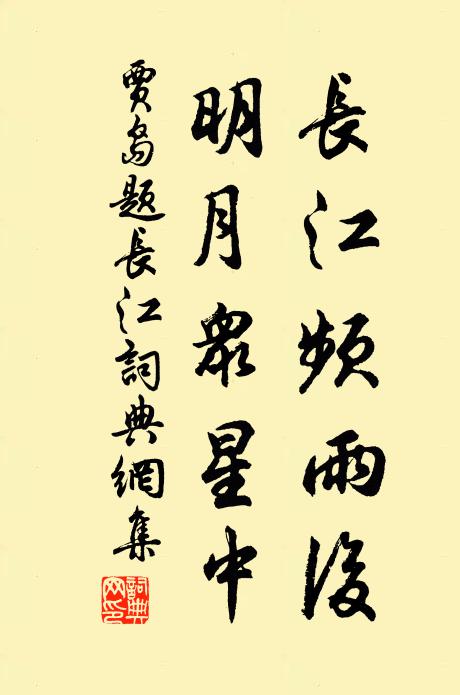 長江頻雨後
明月眾星中
賈島題長江詞典網集
詞典網印